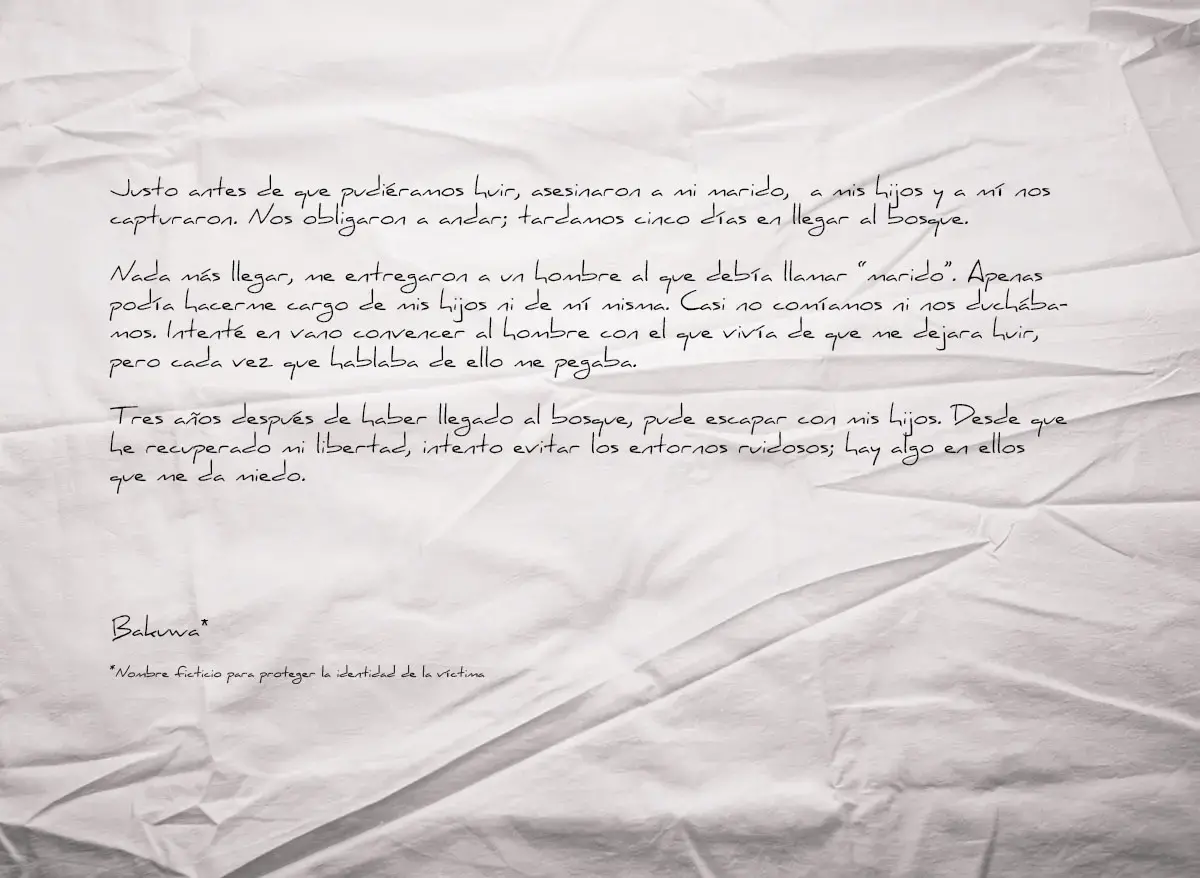 Justo antes de que pudiéramos huir, asesinaron a mi marido, a mis hijos y a mí nos
capturaron. Nos obligaron a andar; tardamos cinco días en llegar al bosque.
Nada más llegar, me entregaron a un hombre al que debía llamar “marido”. Apenas
podía hacerme cargo de mis hijos ni de mí misma. Casi no comíamos ni nos duchába-
mos. Intenté en vano convencer al hombre con el que vivía de que me dejara huir,
pero cada vez que hablaba de ello me pegaba.
Tres años después de haber llegado al bosque, pude escapar con mis hijos. Desde que
he recuperado mi libertad, intento evitar los entornos ruidosos; hay algo en ellos
que me da miedo.
Bakuwa*
*Nombre ficticio para proteger la identidad de la víctima